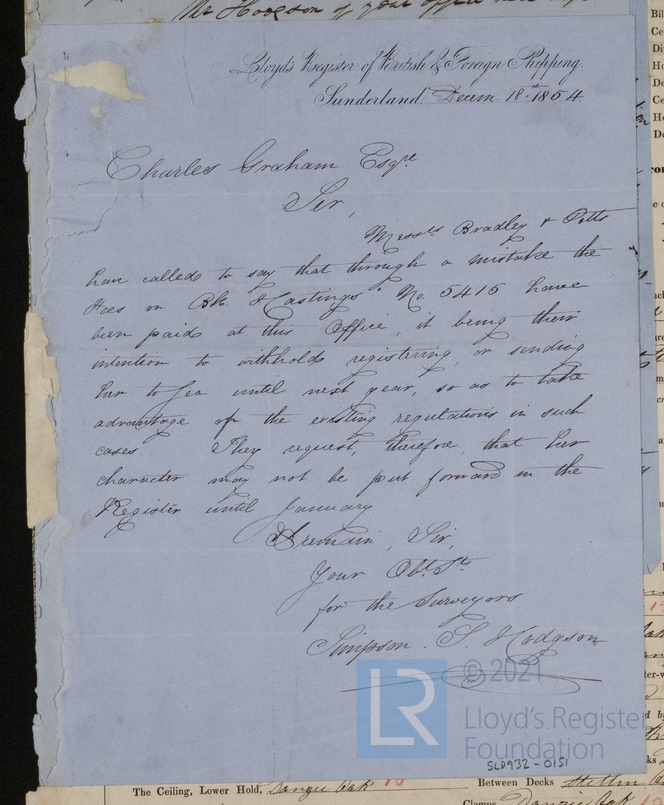 Mr Hodgson of your office
Lloyd's Register of British & Foreign Shipping.
Sunderland, Decem. 18th 1854.
Charles Graham Esqre
Sir,
Messrs Bradley & Potts
have called to say that through a mistake the
Fees on Bk Hastings No. 5415 have
been paid at this Office, it being their
intention to withhold registering, or sending
her to Sea until next year, so as to take
advantage of the existing regulations in such
cases. They request, therefore, that her
character may not be put forward in the
Register until January
I remain, Sir,
Your Obt. St.
for the Surveyors
Simpson. T. Hodgson
© 2021
LR
Lloyd's Register
Foundation
SLD932-0151
The Ceiling, Lower Hold, Danzic Oak 10
Between Decks Stettin
Clamps Danzic Oak